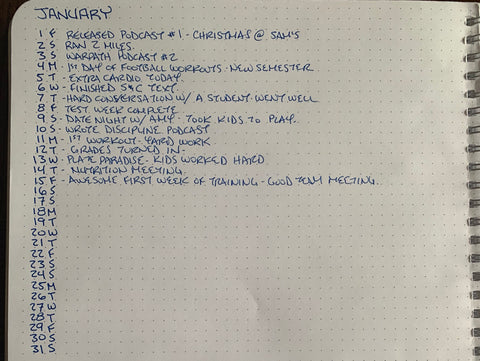 JANUARY
1 F RELEASED PODCAST #1 - CHRISTMAS @ SAM'S
2 S RAN 2 MILES.
3 S WARPATH PODCAST #2
4 M 1ST DAY OF FOOTBALL WORKOUTS - NEW SEMESTER
5 T - EXTRA CARDIO TODAY.
6 W - FINISHED S&C TEXT.
7 T - HARD CONVERSATION W/ A STUDENT - WENT WELL
8 F TEST WEEK COMPLETE
9 S - DATE NIGHT W/ AMY - TOOK KIDS TO PLAY.
10 S - WROTE DISCIPLINE PODCAST
11 M - 1ST WORKOUT - YARD WORK
12 T - GRADES TURNED IN -
13 W - PLATE PARADISE - KIDS WORKED HARD
14 T - NUTRITION MEETING.
15 F - AWESOME FIRST WEEK OF TRAINING - GOOD TEAM MEETING.
16 S
17 S
18 M
19 T
20 W
21 T
22 F
23 S
24 S
25 M
26 T
27 W
28 T
29 F
30 S
31 S